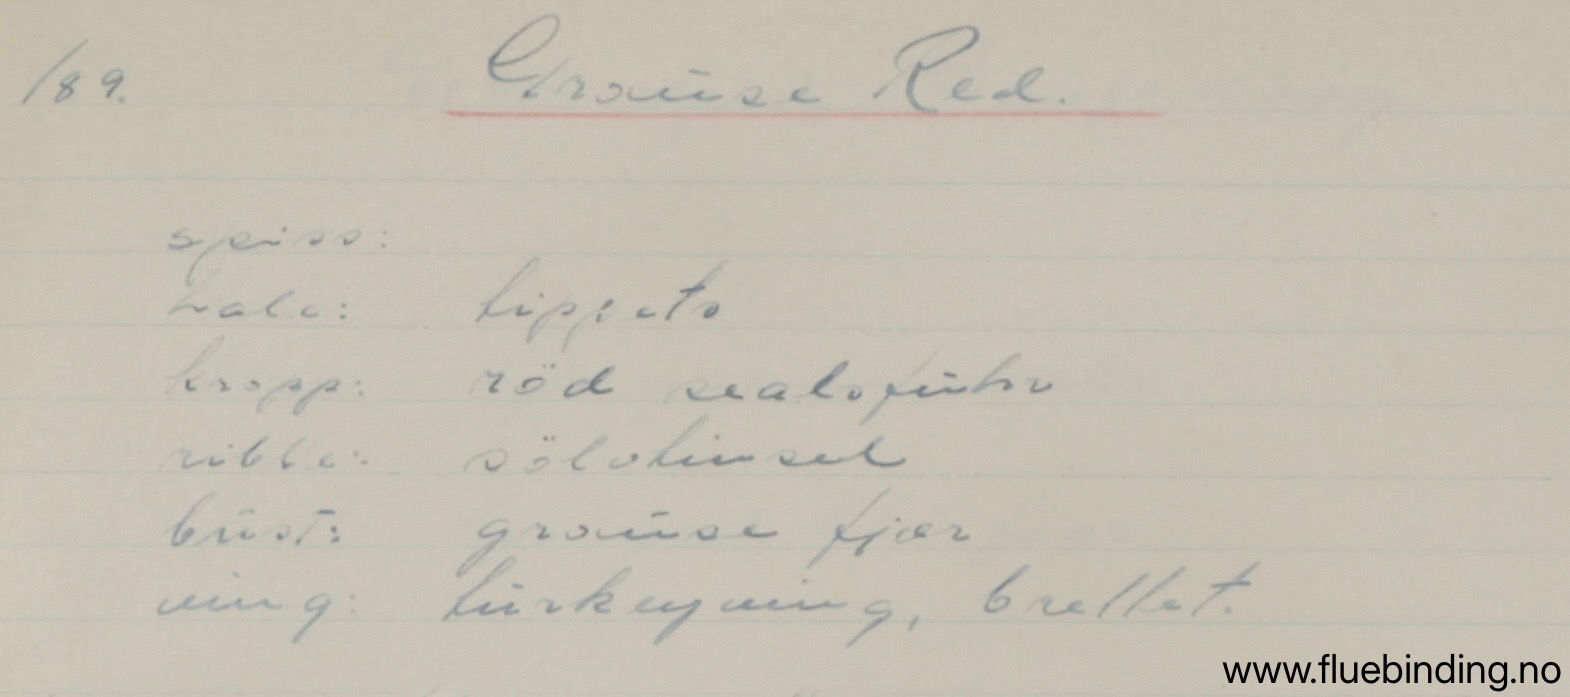 189.
Grouse Red.
spiss:
hale: tippets
kropp: röd sealsfuhr
ribbe: sölvtinsel
bust: grouse fjær
ving: turkeyving, brettet.
www.fluebinding.no